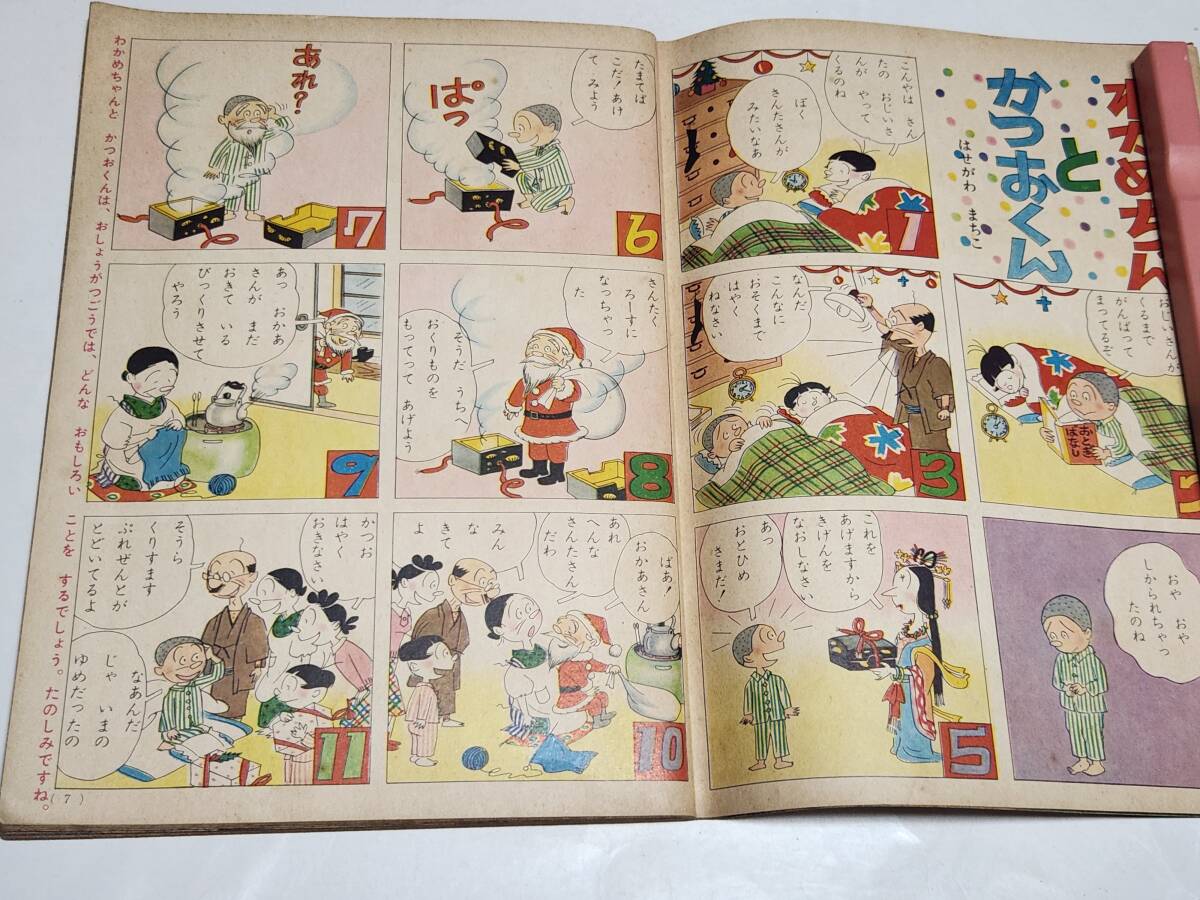 わかめちゃん
と
かつおくん
はせがわ まちこ
こんやは さん
たの おじいさ
んが やって
くるのね
ぼく
さんたさんが
みたいなあ
1
おじいさんが
くるまで
がんばって
まってるぞ
おとぎ
ばなし
2
なんだ
こんなに
おそくまで
はやく
ねなさい
3
おや おや
しかられちゃっ
たのね
これを
あげますから
きげんを
なおしなさい
あっ
おとひめ
さまだ!
5
たまてば
こだ!あけ
て みよう
ぱっ
6
あれ?
7
さんたく
ろーすに
なっちゃっ
た
そうだ うちへ
おくりものを
もってって あげよう
8
あっ おかあ
さんが まだ
おきて いる
びっくりさせて
やろう
9
ばあ!
おかあさん
あれ
へんな
さんたさん
だわ
みん
な
きて
よ
10
かつお
はやく
おきなさい
そうら
くりすます
ぷれぜんとが
とどいてるよ
なあんだ
じゃ いまの
ゆめだったの
11
わかめちゃんと かつおくんは、おしょうがつごうでは、どんな おもしろい ことを するでしょう。たのしみですね。
(7)